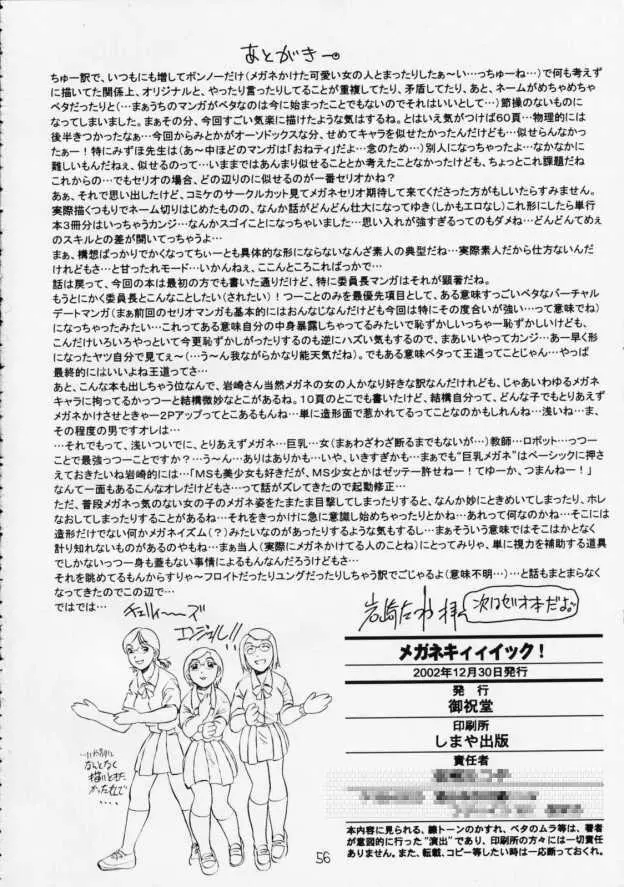 あとがきー
ちゅー訳で、いつもにも増してボンノーだけ(メガネかけた可愛い女の人とまったりしたぁ〜い…っちゅーね…)で何も考えず
に描いてた関係上、オリジナルと、やったり言ったりしてることが重複してたり、矛盾してたり、あと、ネームがめちゃめちゃ
ベタだったりと(…まぁうちのマンガがベタなのは今に始まったことでもないのでそれはいいとして…)節操のないものに
なってしまいました。まぁその分、今回すごい気楽に描けたような気はするね。とはいえ気がつけば60頁…物理的には
後半きつかったなぁ…今回からみとかがオーソドックスな分、せめてキャラを似せたかったんだけども…似せらんなかっ
たぁー!特にみずほ先生は(あ〜中ほどのマンガは「おねティ」だよ…念のため…)別人になっちゃったよ…なかなかに
難しいもんだねぇ、似せるのって…いままではあんまり似せることとか考えたことなかったけども、ちょっとこれ課題だね
これからの…でもセリオの場合、どの辺りのに似せるのが一番セリオかね?
あぁ、それで思い出したけど、コミケのサークルカット見てメガネセリオ期待して来てくださった方がもしいたらすみません。
実際描くつもりでネーム切りはじめたものの、なんか話がどんどん壮大になってゆき(しかもエロなし)これ形にしたら単行
本3冊分はいっちゃうカンジ…なんかスゴイことになっちゃいました…思い入れが強すぎるってのもダメね…どんどんてめぇ
のスキルとの差が開いてっちゃうよ…
まぁ、構想ばっかりでかくなってちぃーとも具体的な形にならないなんざ素人の典型だね…実際素人だから仕方ないんだ
けれどもさ…と甘ったれモード…いかんねぇ、ここんところこればっかで…
話は戻って、今回の本は最初の方でも書いた通りだけど、特に委員長マンガはそれが顕著だね。
もうとにかく委員長とこんなことしたい(されたい)!つーことのみを最優先項目として、ある意味すっごいベタなバーチャル
デートマンガ(まぁ前回のセリオマンガも基本的にはおんなじなんだけども今回は特にその度合いが強い…って意味でね)
になっちゃったみたい…これってある意味自分の中身暴露しちゃってるみたいで恥ずかしいっちゃー恥ずかしいけども、
こんだけいろいろやっといて今更恥ずかしがったりするのも逆にハズい気もするので、まあいいやってカンジ…あー早く形
になったヤツ自分で見てぇ〜(…う〜ん我ながらかなり能天気だね)。でもある意味ベタって王道ってことじゃん…やっぱ
最終的にはいいよね王道ってさ…
あと、こんな本も出しちゃう位なんで、岩崎さん当然メガネの女の人かなり好きな訳なんだけれども、じゃあいわゆるメガネ
キャラに拘ってるかっつーと結構微妙なとこがあるね。10頁のとこでも書いたけど、結構自分って、どんな子でもとりあえず
メガネかけさせときゃー2Pアップってとこあるもんね…単に造形面で惹かれてるってことなのかもしれんね…浅いね…ま、
その程度の男ですオレは…
…それでもって、浅いついでに、とりあえずメガネ…巨乳…女(まぁわざわざ断るまでもないが…)教師…ロボット…っつー
ことで最強っつーことですか?…う〜ん…ありはありかも…いや、いきすぎかも…まぁでも"巨乳メガネ"はベーシックに押さ
えておきたいね岩崎的には…「MSも美少女も好きだが、MS少女とかはゼッテー許せねー!てゆーか、つまんねー!」
なんて一面もあるこんなオレだけどもさ…って話がズレてきたので起動修正…
ただ、普段メガネっ気のない女の子のメガネ姿をたまたま目撃してしまったりすると、なんか妙にときめいてしまったり、ホレ
なおしてしまったりすることがあるね…それをきっかけに急に意識し始めちゃったりとかね…あれって何なのかね…そこには
造形だけでない何かメガネイズム(?)みたいなのがあったりするような気もするし…まぁそういう意味ではそこはかとなく
計り知れないものがあるのやもね…まぁ当人(実際にメガネかけてる人のことね)にとってみりゃ、単に視力を補助する道具
でしかないっつー身も蓋もない事情によるもんなんだろうけどもさ…
それを眺めてるもんからすりゃ〜フロイトだったりユングだったりしちゃう訳でごじゃるよ(意味不明…)…と話もまとまらなく
なってきたのでこの辺で…
ではでは…
岩崎たつや 拝
次はゼオ本だよ
チェリィ〜〜ズ
エンジェル!!
なんとなく
描いときた
かったので
・・・・
メガネキィィイック!
2002年12月30日発行
発 行
御祝堂
印刷所
しまや出版
責任者
本内容に見られる、線トーンのかすれ、ベタのムラ等は、著者
が意図的に行った"演出"であり、印刷所の方々には一切責任
ありません。また、転載、コピー等したい時は一応断っておくれ。
56